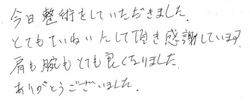 今日整術をしていただきました。
とてもていねいにして頂き感謝しています。
肩も腕もとても良くなりました。
ありがとうございました。